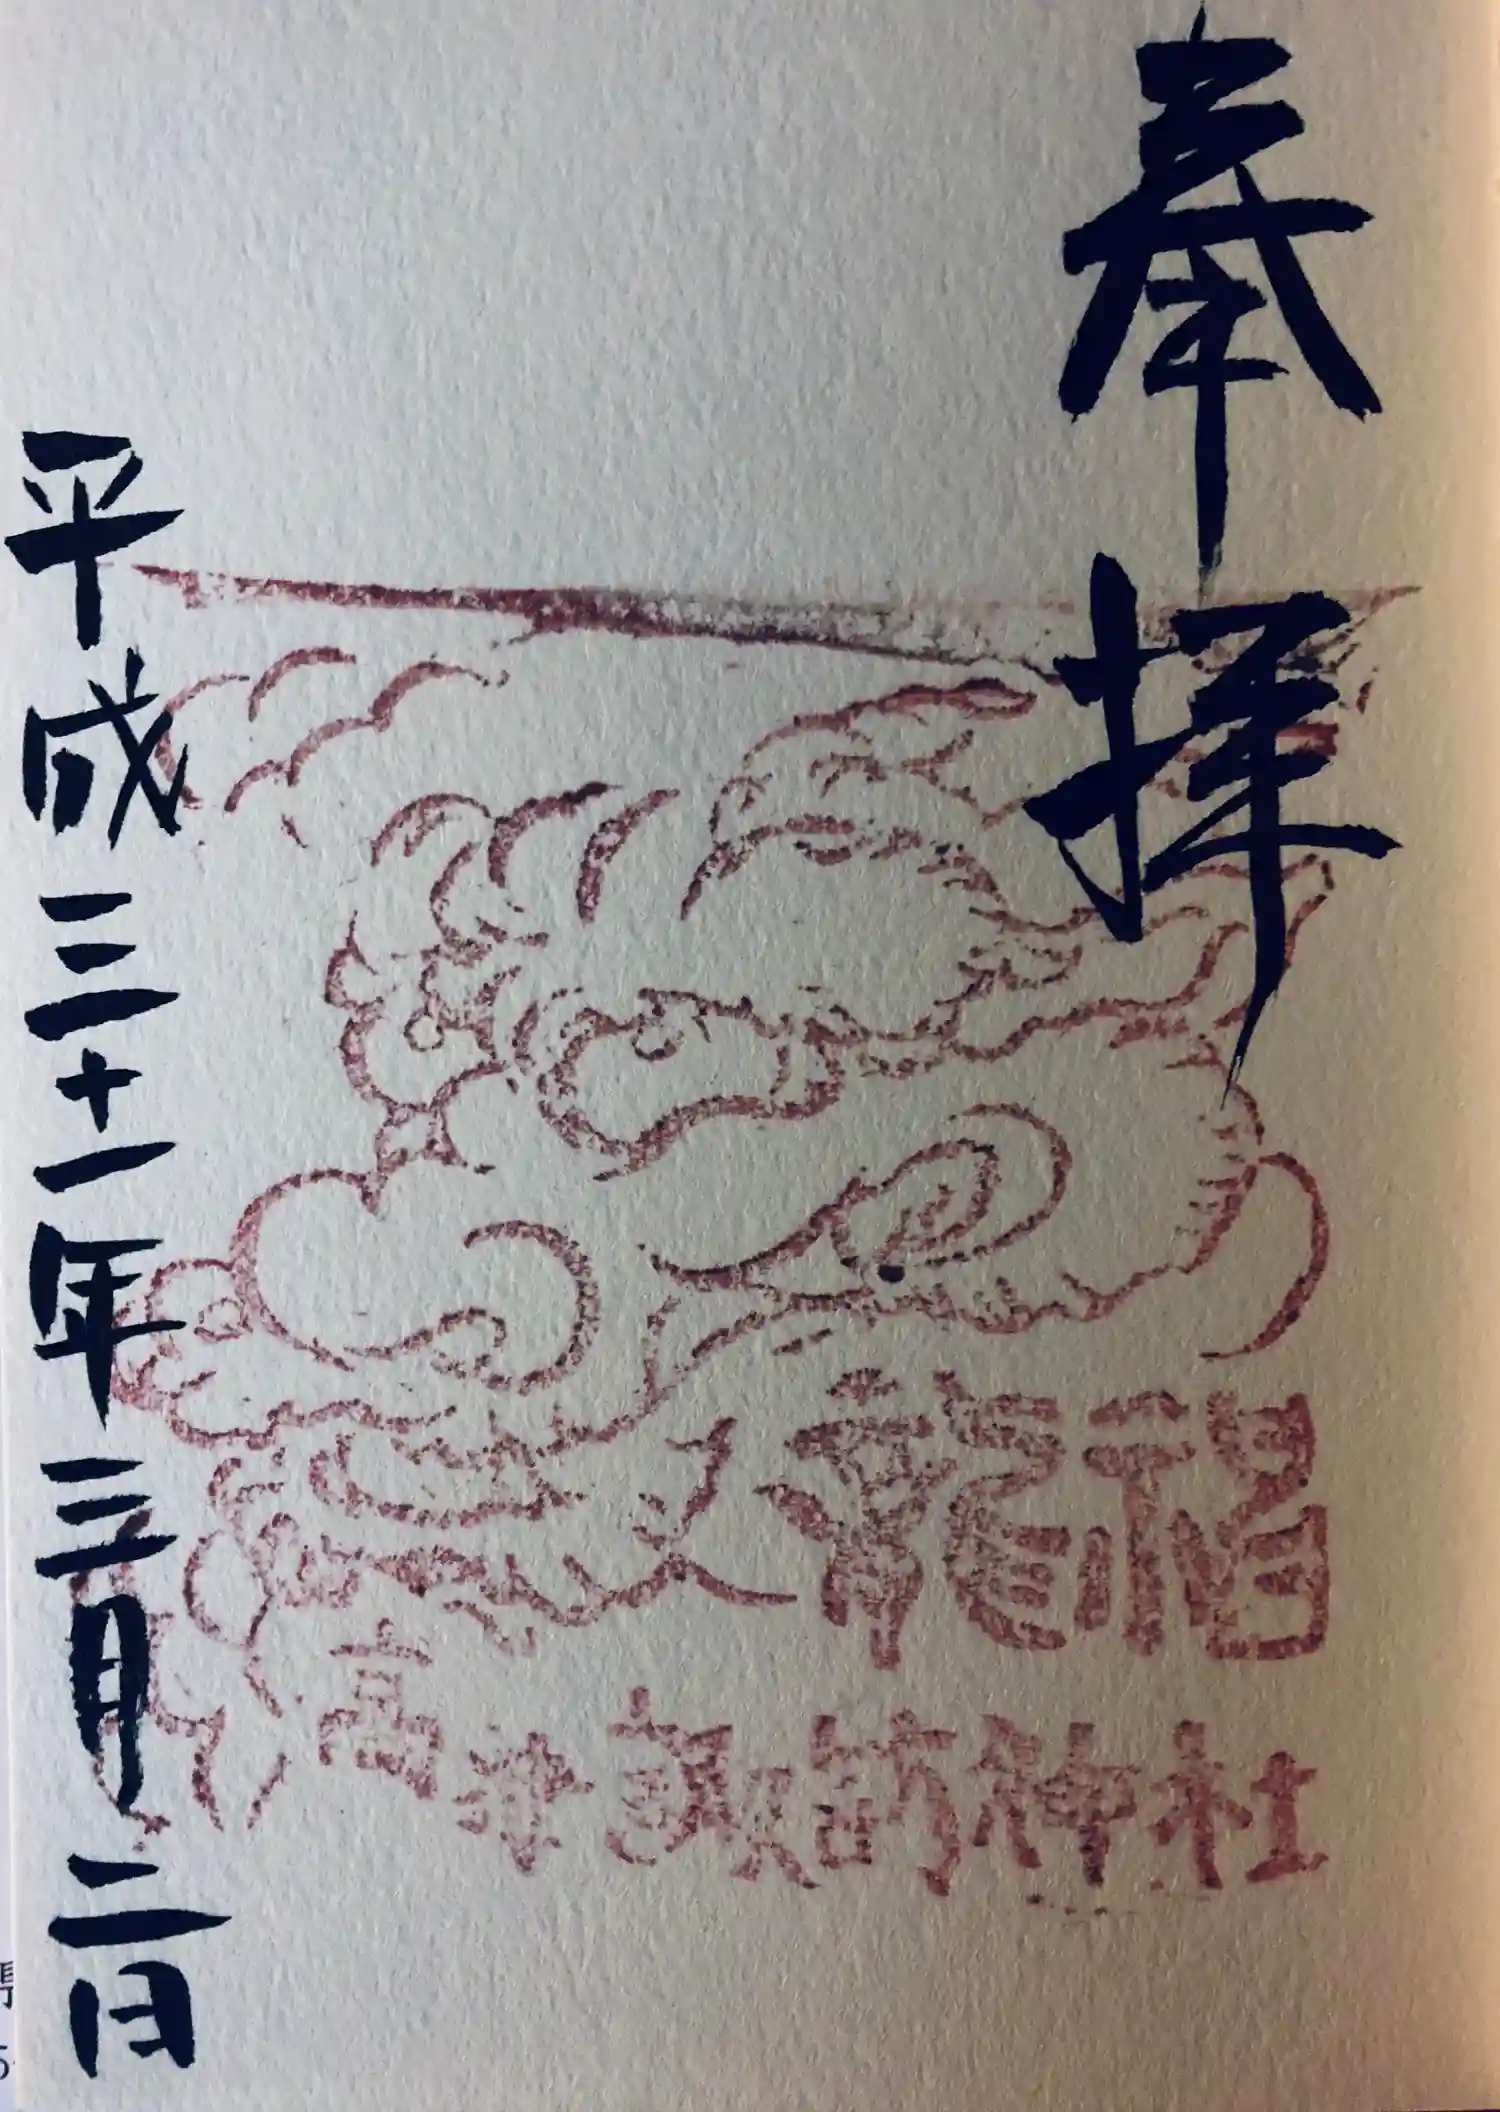 奉拝
龍福
諏訪神社
平成三十一年三月二日